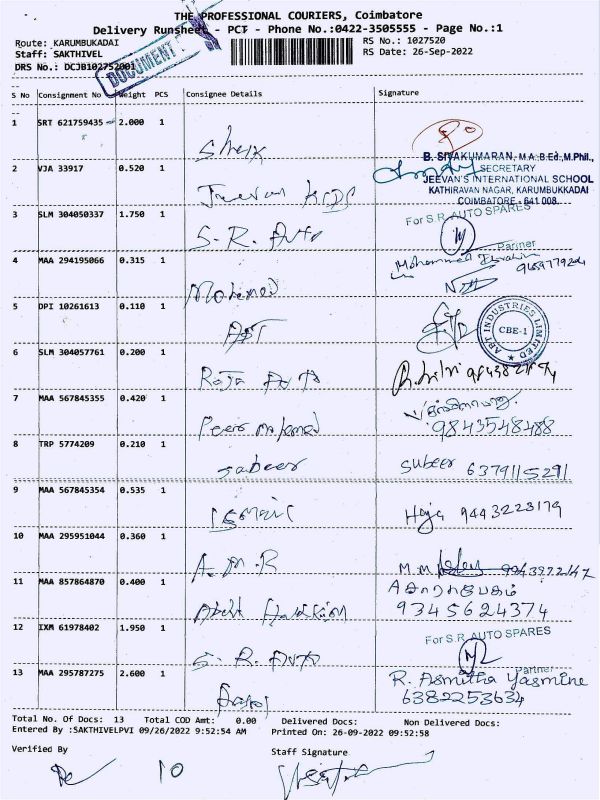 THE PROFESSIONAL COURIERS, Coimbatore
Delivery Runsheet - PCT - Phone No.:0422-3505555 - Page No.:1
Route: KARUMBUKADAI
Staff: SAKTHIVEL
DRS No.: DCJB102752001
RS No.: 1027520
RS Date: 26-Sep-2022
DOCUMENT
S No Consignment No Weight PCS Consignee Details Signature
1 SRT 621759435 2.000 1
B. SIVAKUMARAN, M.A.,B.Ed.,M.Phil.,
SECRETARY
JEEVAN'S INTERNATIONAL SCHOOL
KATHIRAVAN NAGAR, KARUMBUKKADAI
COIMBATORE - 641 008.
2 VJA 33917 0.520 1 Jeevan
3 SLM 304050337 1.750 1 S. R. Auto
For S.R. AUTO SPARES
Partner
4 MAA 294195066 0.315 1 Mohamed
Mohammed Ibrahim
5 DPI 10261613 0.110 1 ABT
ABT INDUSTRIES LIMITED
CBE-1
6 SLM 304057761 0.200 1 Raja Auto
7 MAA 567845355 0.420 1 Peer Mohamed
9843548488
8 TRP 5774209 0.210 1 Sabeer Subeer 6379115291
9 MAA 567845354 0.535 1 Ismail Haja 9443223179
10 MAA 295951044 0.360 1 A.M.R
M.M
11 MAA 857864870 0.400 1 Abdul
9345624374
12 IXM 61978402 1.950 1 S. R. Auto
For S.R. AUTO SPARES
Partner
13 MAA 295787275 2.600 1
R. Asmitha Yasmine
6382253634
Total No. Of Docs: 13 Total COD Amt: 0.00 Delivered Docs: Non Delivered Docs:
Entered By :SAKTHIVELPVI 09/26/2022 9:52:54 AM Printed On: 26-09-2022 09:52:58
Verified By Staff Signature
10